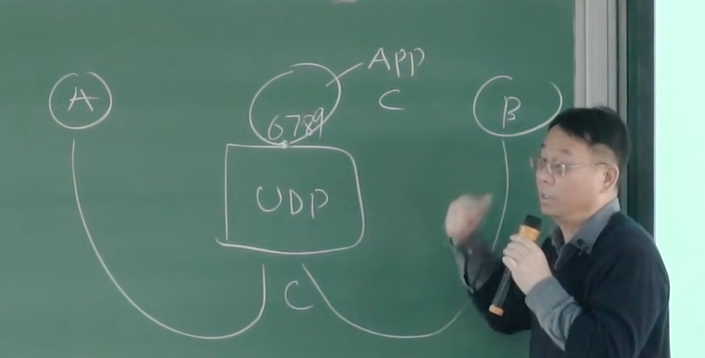 APP
C
A
6789
B
UDP
C